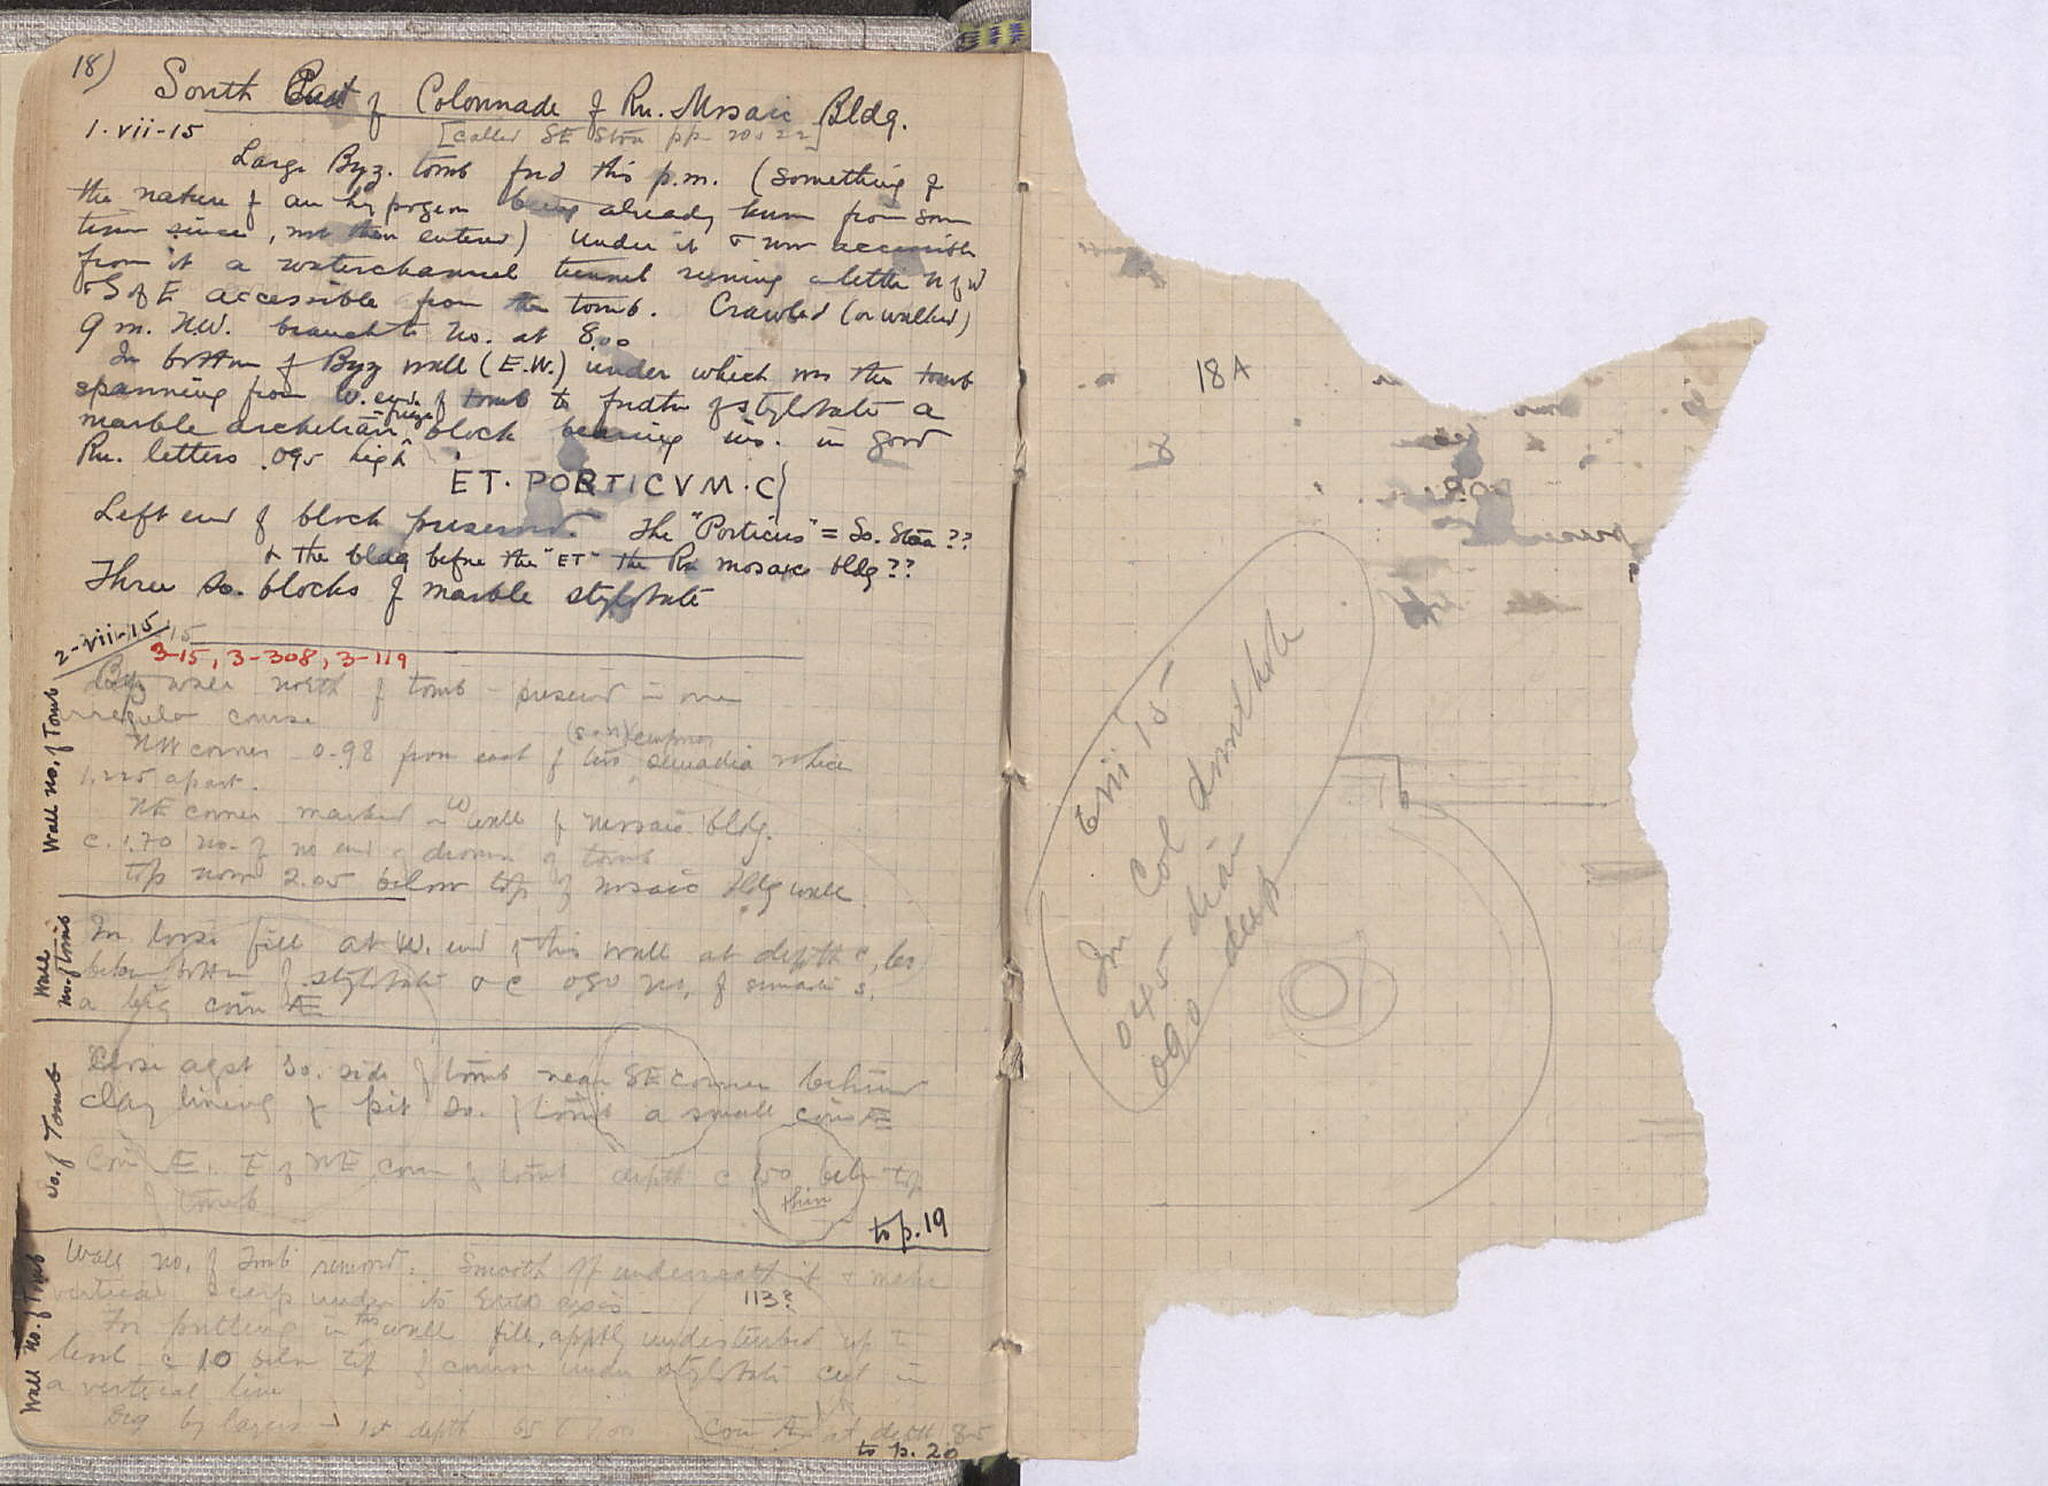 18)
South East of Colonnade of Rn. Mosaic Bldg.
1-vii-15 [called SE Stoa pp 20, 22]
Large Byz. tomb fnd this p.m. (something of
the nature of an hypogeum being already knwn from som
time since, not then entered) Under it & now accessible
from it a waterchannel tunnel running a little N of W
& S of E accessible from the tomb. Crawled (or walked)
9 m. NW. branch to No. at 8.00
In bottom of Byz wall (E.W.) under which was the tomb
spanning from W. end of tomb to fndtn of stylobate a
marble architrave-frieze block bearing ins. in good
Rn. letters .095 high
ET. PORTICVM. C
Left end of block preserved. The "Porticus" = So. Stoa ??
& the bldg before the "ET" the Rn mosaic bldg ??
Three So. blocks of marble stylobate
2-vii-15
3-15, 3-308, 3-119
Wall no. of Tomb
Byz wall north of tomb - preserved in one
irregular course
NW corner 0.98 from east of two semadia which
1.225 apart.
NE corner marked in W wall of mosaic bldg.
c. 1.70 no. of no end of dromos of tomb
top now 2.05 below top of mosaic bldg wall.
Wall no. of Tomb
In loose fill at W. end of this wall at depth c.
below bottom of stylobate & c 050 no. of
a big coin Æ
So. of Tomb
Close agst So. side of tomb near SE corner behind
clay lining of pit So. of tomb a small coin Æ
Coin Æ. E of NE corner of tomb depth c 150 below top
of tomb
thin
to p. 19
Wall no. of Tomb
Wall no. of Tomb removed. Smooth off underneath it & make
vertical scarp under its axis - 113?
For putting in this wall fill, apptly undisturbed up to
level c 10 below top of course under stylobate cut in
a vertical line
Dig by layers - 1st depth Coin Æ at depth 85
to p. 20
18A
In Col drumhole
045 diam
090 deep